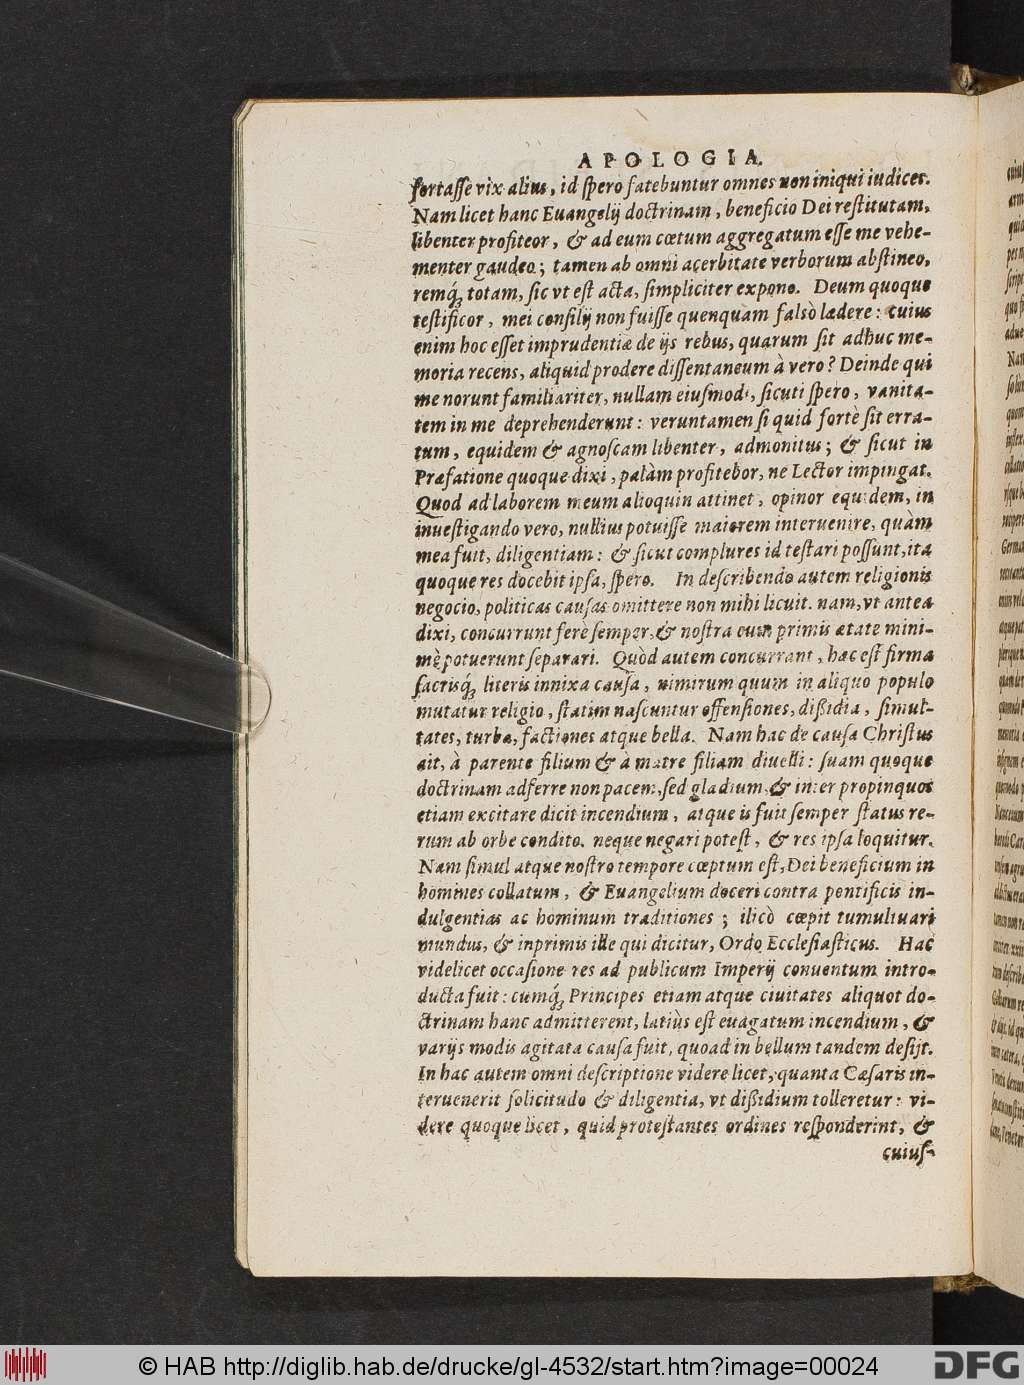 APOLOGIA.
fortasse vix alius, id spero fatebuntur omnes non iniqui iudices.
Nam licet hanc Euangelij doctrinam, beneficio Dei restitutam,
libenter profiteor, & ad eum cœtum aggregatum esse me vehe-
menter gaudeo; tamen ab omni acerbitate verborum abstineo,
remq́; totam, sic vt est acta, simpliciter expono. Deum quoque
testificor, mei consilij non fuisse quenquam falsò lædere: cuius
enim hoc esset imprudentiæ de ijs rebus, quarum sit adhuc me-
moria recens, aliquid prodere dissentaneum à vero? Deinde qui
me norunt familiariter, nullam eiusmodi, sicuti spero, vanita-
tem in me deprehenderunt: veruntamen si quid fortè sit erra-
tum, equidem & agnoscam libenter, admonitus; & sicut in
Præfatione quoque dixi, palàm profitebor, ne Lector impingat.
Quod ad laborem meum alioquin attinet, opinor equidem, in
inuestigando vero, nullius potuisse maiorem interuenire, quàm
mea fuit, diligentiam: & sicut complures id testari possunt, ita
quoque res docebit ipsa, spero. In describendo autem religionis
negocio, politicas causas omittere non mihi licuit. nam, vt antea
dixi, concurrunt ferè semper, & nostra cum primis ætate mini-
mè potuerunt separari. Quòd autem concurrant, hæc est firma
sacrisq́; literis innixa causa, nimirum quum in aliquo populo
mutatur religio, statim nascuntur offensiones, dißidia, simul-
tates, turbæ, factiones atque bella. Nam hac de causa Christus
ait, à parente filium & à matre filiam diuelli: suam quoque
doctrinam adferre non pacem, sed gladium, & inter propinquos
etiam excitare dicit incendium, atque is fuit semper status re-
rum ab orbe condito. neque negari potest, & res ipsa loquitur.
Nam simul atque nostro tempore cœptum est, Dei beneficium in
homines collatum, & Euangelium doceri contra pontificis in-
dulgentias ac hominum traditiones; ilicò cœpit tumultuari
mundus, & inprimis ille qui dicitur, Ordo Ecclesiasticus. Hac
videlicet occasione res ad publicum Imperij conuentum intro-
ducta fuit: cumq́; Principes etiam atque ciuitates aliquot do-
ctrinam hanc admitterent, latiùs est euagatum incendium, &
varijs modis agitata causa fuit, quoad in bellum tandem desijt.
In hac autem omni descriptione videre licet, quanta Cæsaris in-
teruenerit solicitudo & diligentia, vt dißidium tolleretur: vi-
dere quoque licet, quid protestantes ordines responderint, &
cuius-
© HAB http://diglib.hab.de/drucke/gl-4532/start.htm?image=00024
DFG